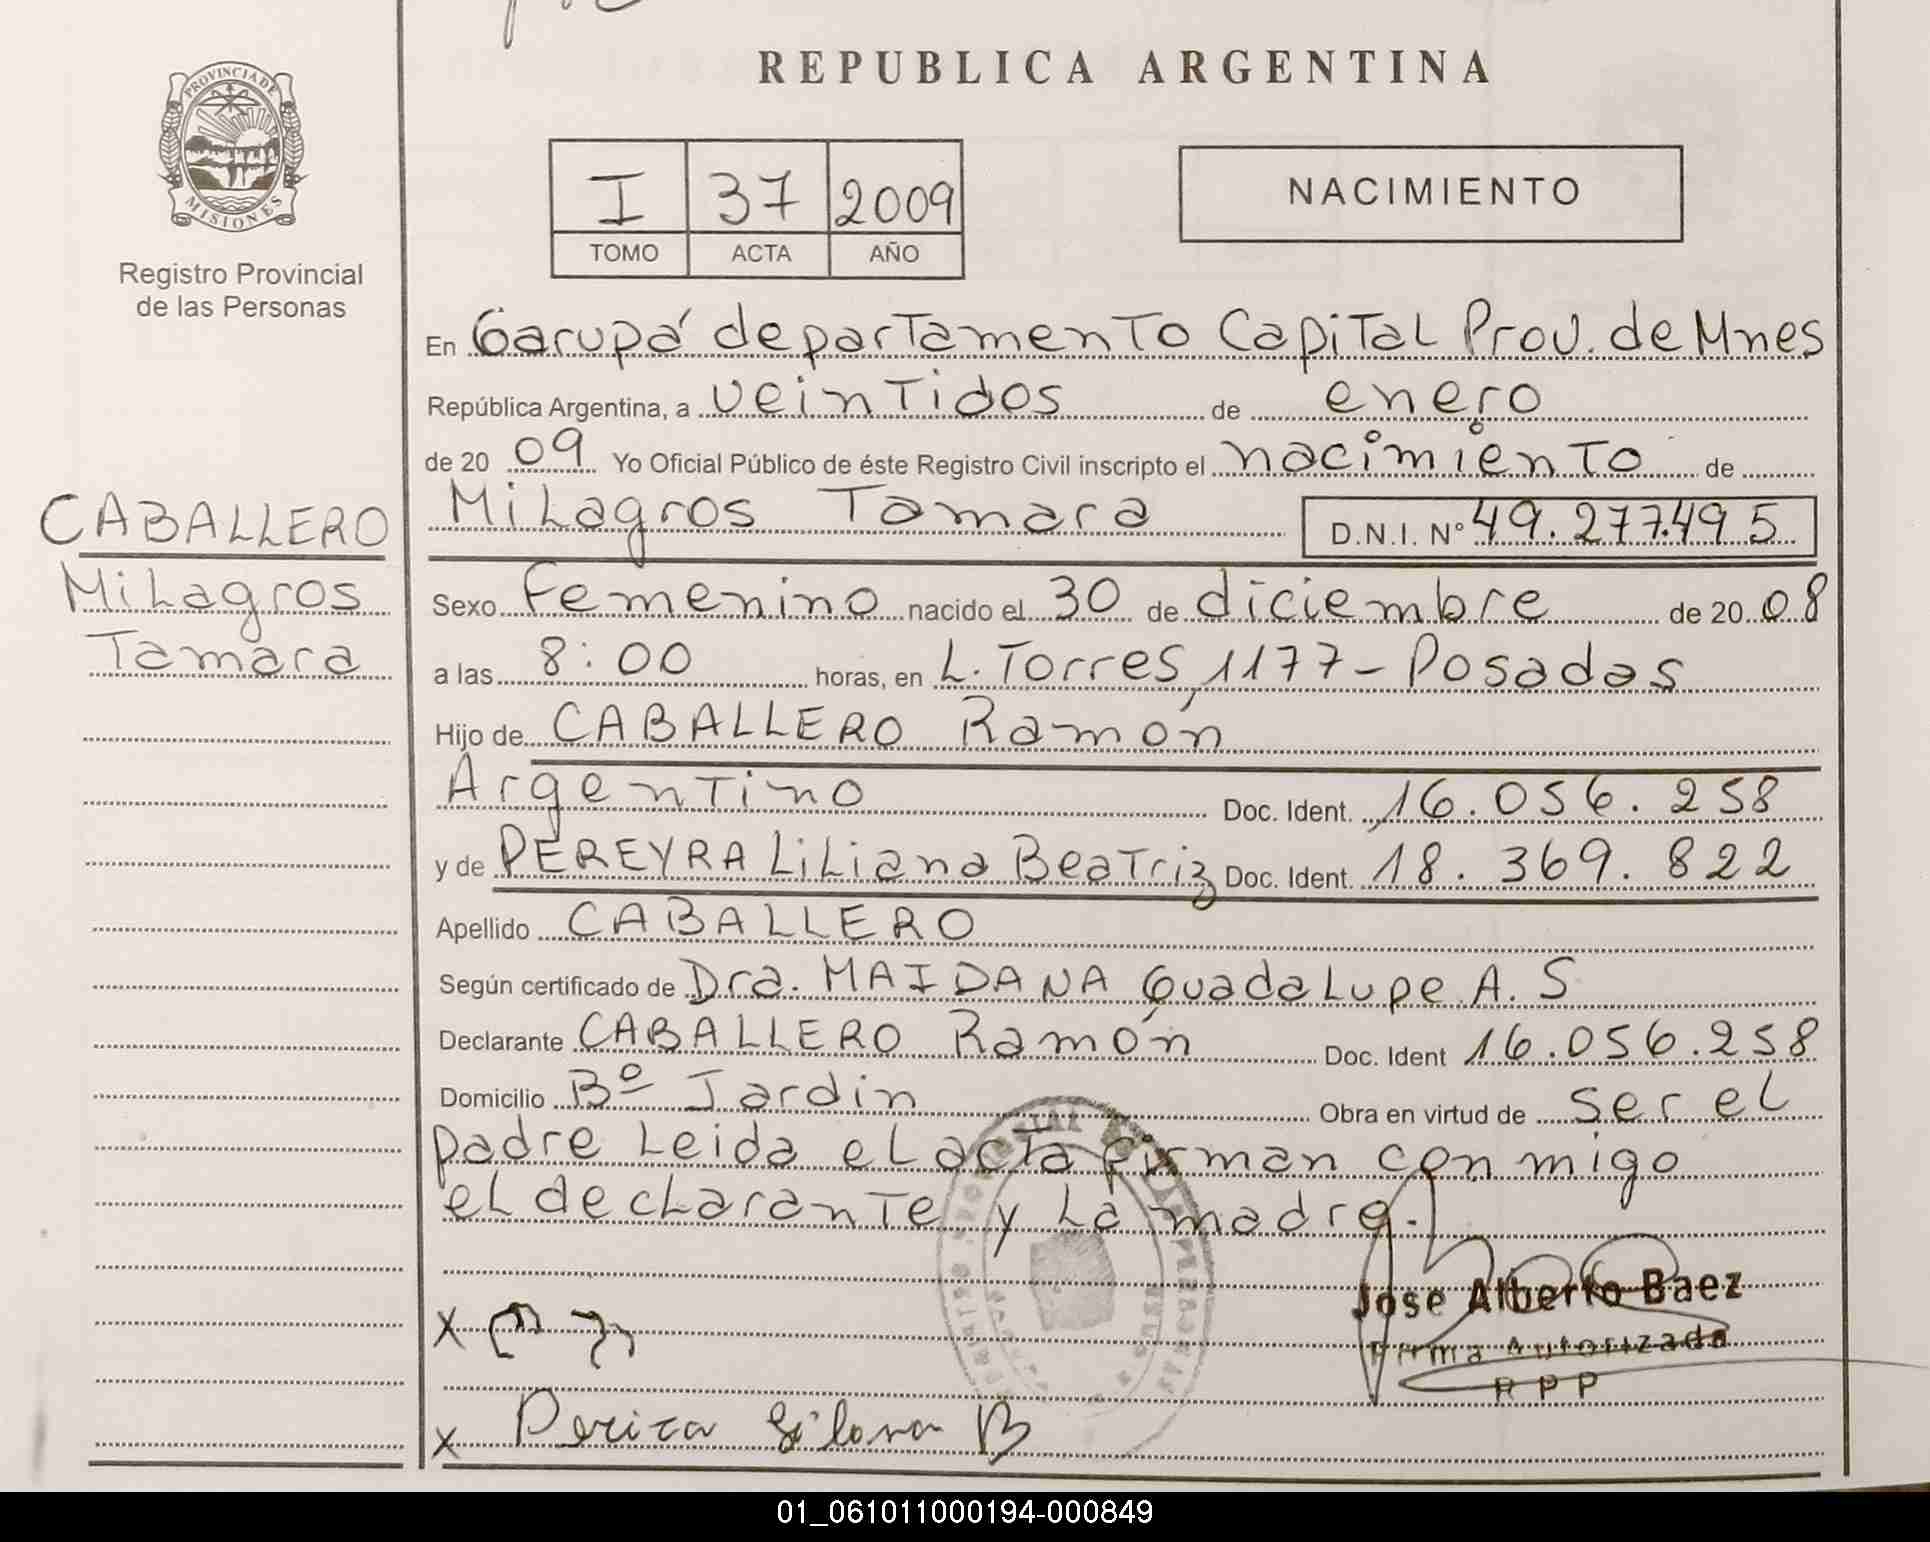 REPUBLICA ARGENTINA
PROVINCIA DE
MISIONES
Registro Provincial
de las Personas
I 37 2009
TOMO ACTA AÑO
NACIMIENTO
En Garupá departamento Capital Prov. de Mnes
República Argentina, a veintidos de enero
de 20 09 Yo Oficial Público de éste Registro Civil inscripto el nacimiento de
Milagros Tamara D.N.I. Nº 49.277.495
CABALLERO
Milagros
Tamara
Sexo Femenino nacido el 30 de diciembre de 20 08
a las 8:00 horas, en L. Torres 1177 - Posadas
Hijo de CABALLERO Ramón
Argentino Doc. Ident. 16.056.258
y de PEREYRA Liliana Beatriz Doc. Ident. 18.369.822
Apellido CABALLERO
Según certificado de Dra. MAIDANA Guadalupe A. S
Declarante CABALLERO Ramón Doc. Ident 16.056.258
Domicilio Bº Jardin Obra en virtud de ser el
padre Leida el acta firman con migo
el declarante y la madre.
Jose Alberto Baez
Firma Autorizada
R P P
X
X
B
01_061011000194-000849